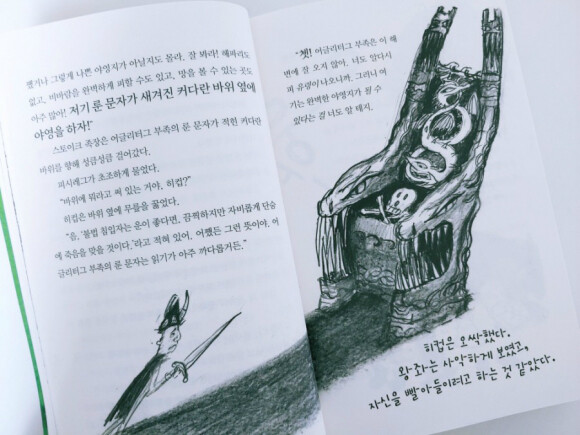 했거나 그렇게 나쁜 야영지가 아닐지도 몰라. 잘 봐라! 해파리도
없고, 비바람을 완벽하게 피할 수도 있고, 망을 볼 수 있는 곳도
아주 많아! 저기 룬 문자가 새겨진 커다란 바위 옆에
야영을 하자!"
스토이크 족장은 어글리터그 부족의 룬 문자가 적힌 커다란
바위를 향해 성큼성큼 걸어갔다.
피시레그가 초조하게 물었다.
"바위에 뭐라고 써 있는 거야, 히컵?"
히컵은 바위 옆에 무릎을 꿇었다.
"음, '불법 침입자는 운이 좋다면, 끔찍하지만 자비롭게 단숨
에 죽음을 맞을 것이다.'라고 적혀 있어. 어쨌든 그런 뜻이야. 어
글리터그 부족의 룬 문자는 읽기가 아주 까다롭거든."
"쳇! 어글리터그 부족은 이 해
변에 잘 오지 않아. 너도 알다시
피 유령이 나오니까. 그러니 여
기는 완벽한 야영지가 될 수
있다는 걸 너도 알 테지.
히컵은 오싹했다.
왕좌는 사악하게 보였고,
자신을 빨아들이려고 하는 것 같았다.